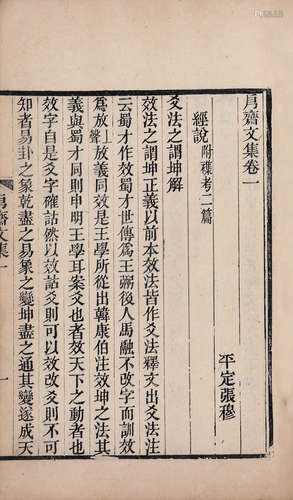 㐆齋文集卷一
平定張穆
經說 附襍考二篇
爻法之謂坤解
效法之謂坤正義以前本效法皆作爻法釋文出爻法注
云蜀才作效蜀才世傳為王弼後人馬融不改字而訓效
為放上聲放義同效是王學所從出韓康伯注效坤之法其
義與蜀才同則申明王學耳案爻也者效天下之動者也
效字自是爻字確詁然以效詁爻則可以效改爻則不可
知者易卦之象乾盡之易象之變坤盡之通其變遂成天
㐆齋文集 一
一